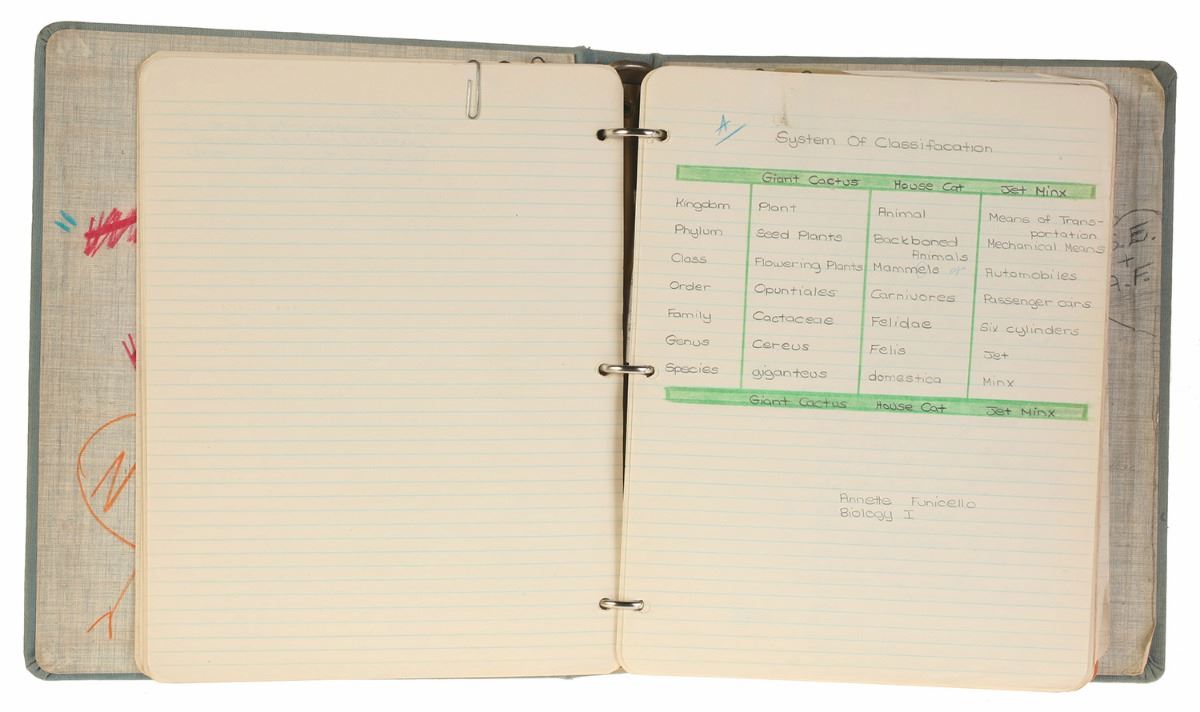 A
System Of Classifacation
Giant Cactus House Cat Jet Minx
Kingdom Plant Animal Means of Trans-
portation
Phylum Seed Plants Backboned Mechanical Means
Animals
Class Flowering Plants Mammels Automobiles
Order Opuntiales Carnivores Passenger cars
Family Cactaceae Felidae Six cylinders
Genus Cereus Felis Jet
Species giganteus domestica Minx
Giant Cactus House Cat Jet Minx
Annette Funicello
Biology I
E.
+
F.
N